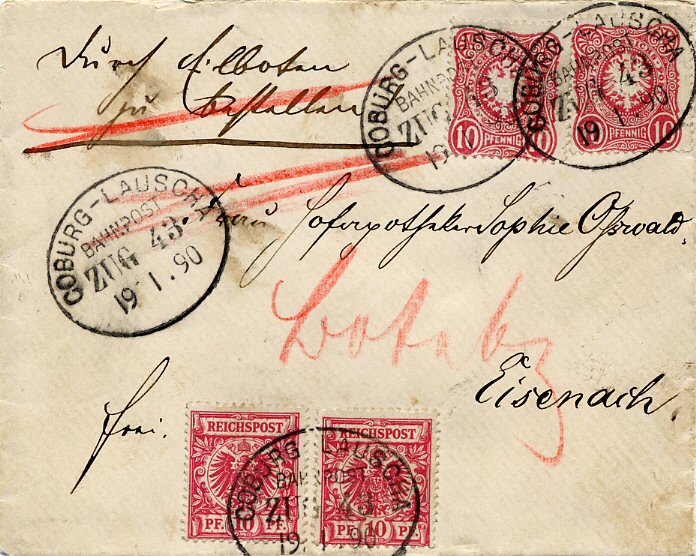 Durch Eilboten
zu bestellen
COBURG-LAUSCHA
BAHNPOST
ZUG 43
19.1.90
10 PFENNIG 10
COBURG-LAUSCHA
BAHNPOST
ZUG 43
19.1.90
10 PFENNIG 10
COBURG-LAUSCHA
BAHNPOST
ZUG 43.
19.1.90
Frau Hofapotheker Sophie Oßwald,
Eisenach.
frei.
REICHSPOST
PF. 10 PF.
REICHSPOST
PF. 10 PF.
COBURG-LAUSCHA
BAHNPOST
ZUG 43
19.1.90